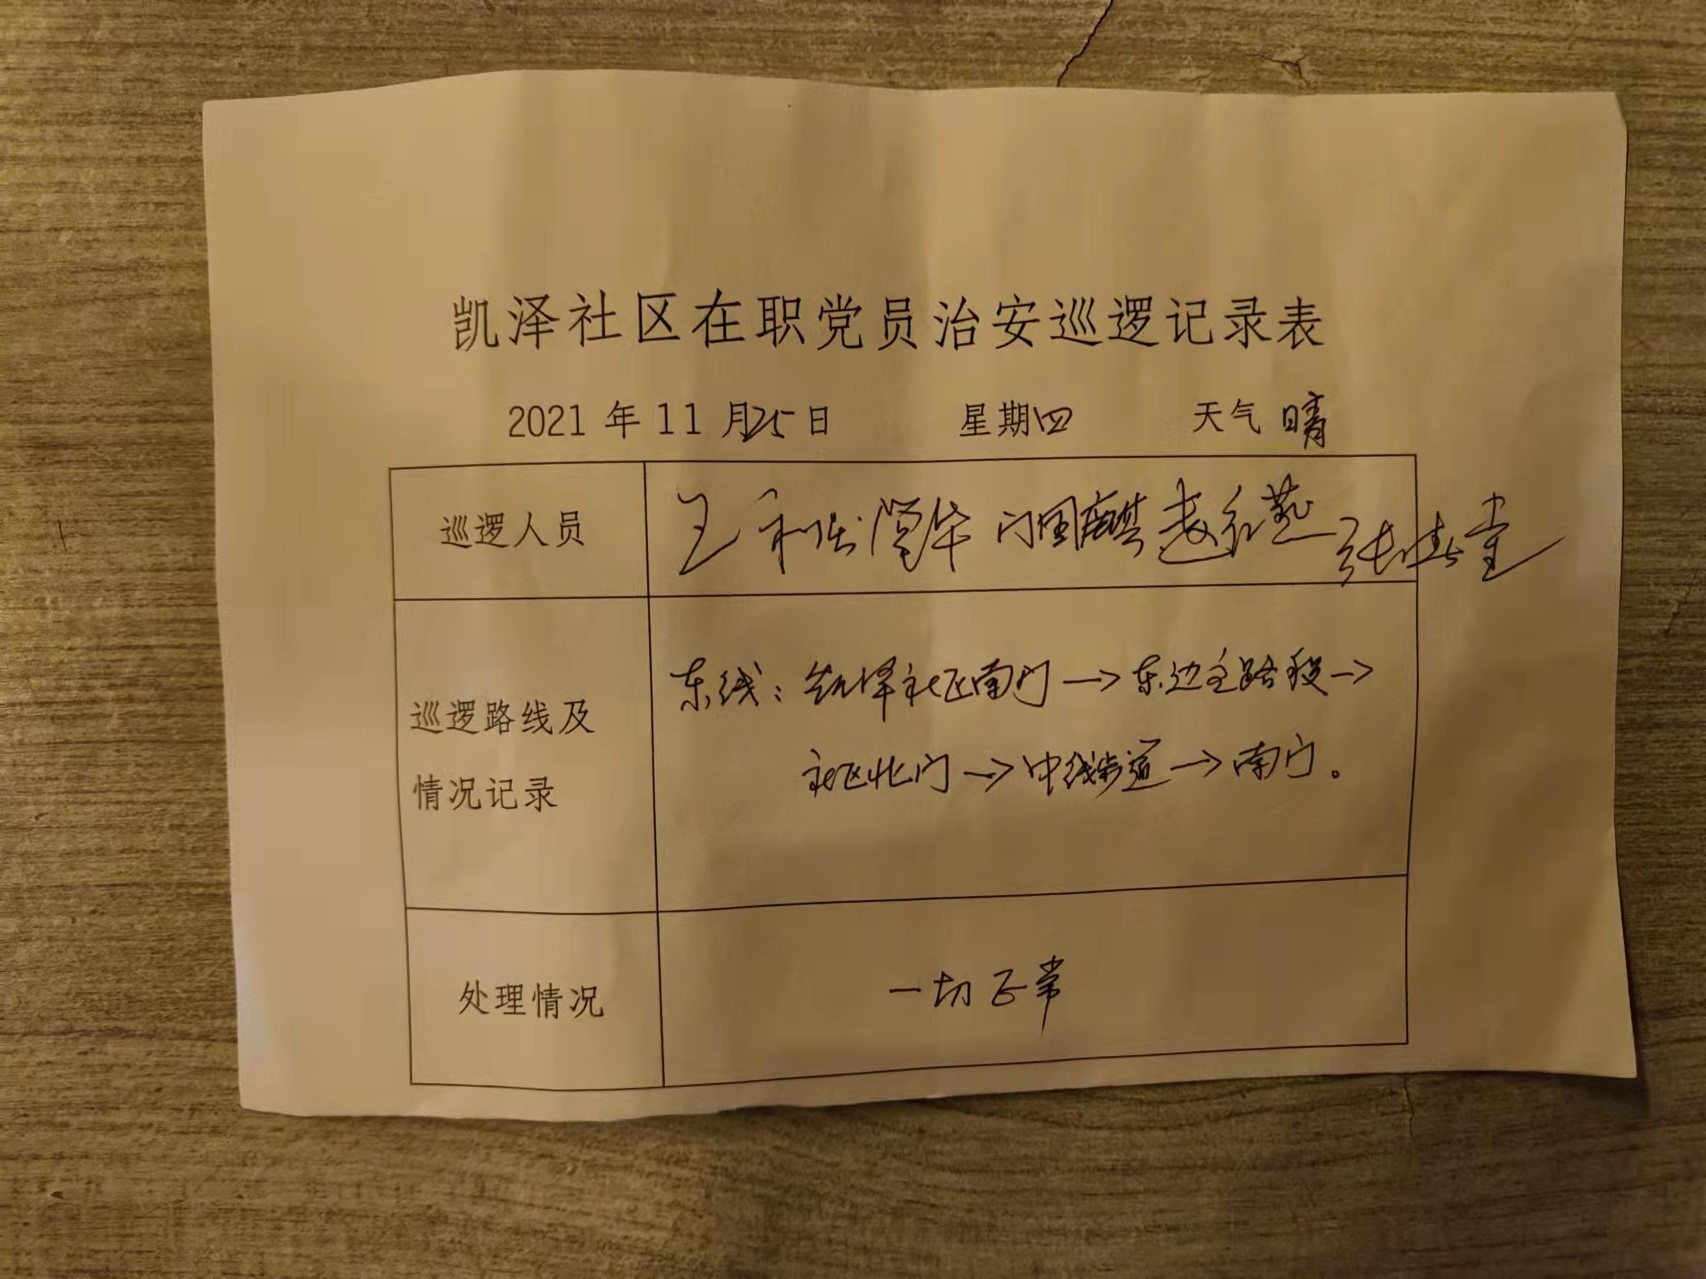 凯泽社区在职党员治安巡逻记录表
2021 年 11 月25日 星期四 天气 晴
巡逻人员 王 门国麒 赵红燕
巡逻路线及
情况记录
东线：凯泽社区南门→东边主路段→
社区北门→中线步道→南门。
处理情况 一切正常